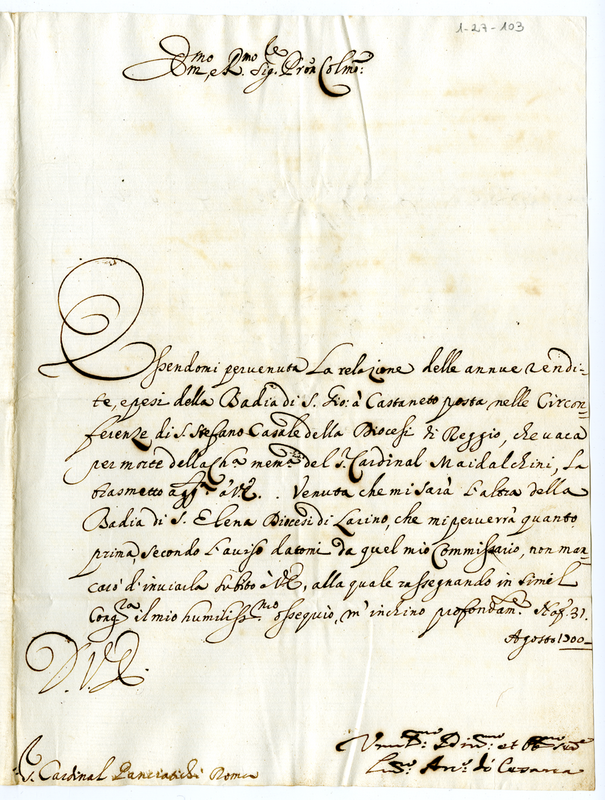 1-27-103
Em.mo, e R.mo Sig. Pron Colmo:
Essendomi pervenuta La relazione delle annue rendi-
te, e pesi della Badia di S. Gio: à Castaneto posta nelle Circon-
ferenze di S. Stefano Casale della Diocesi di Reggio, che vaca
per morte della Ch. mem. del S. Cardinal Maidalchini, La
trasmetto à VE. Venuta che mi sarà L'altra della
Badia di S. Elena Diocesi di Larino, che mi perverrà quanto
prima, secondo L'aviso datomi da quel mio Commissario, non man-
carò d'inviarla subito à VE, alla quale rassegnando in simil
Cong.ra il mio humiliss.mo ossequio, m'inchino profondam.e Nap. 31.
Agosto 1700
D. V. E.
S. Cardinal Panciatichi Roma
Arc. di Cesarea